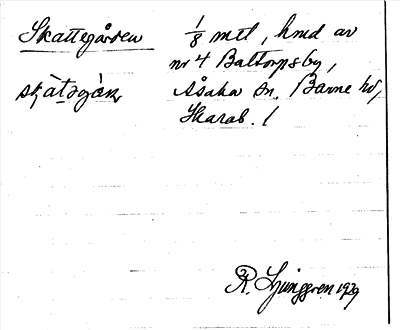 Skattegården 1/8 mtl, hmd av
nr 4 Baltorpsby,
Åsaka sn. Barne hd,
Skarab. l
R. Ljunggren 1929